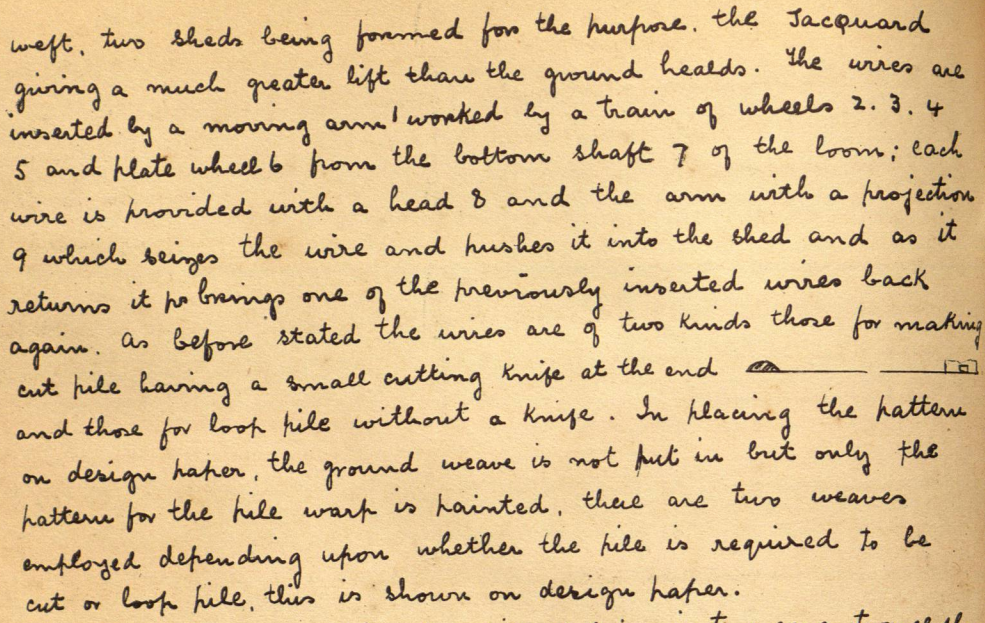 weft, two sheds being formed for the purpose, the Jacquard
giving a much greater lift than the ground healds. The wires are
inserted by a moving arm 1 worked by a train of wheels 2. 3. 4
5 and plate wheel 6 from the bottom shaft 7 of the loom; each
wire is provided with a head 8 and the arm with a projection
9 which seizes the wire and pushes it into the shed and as it
returns it brings one of the previously inserted wires back
again. As before stated the wires are of two kinds those for making
cut pile having a small cutting knife at the end
and those for loop pile without a knife. In placing the pattern
on design paper, the ground weave is not put in but only the
pattern for the pile warp is painted, there are two weaves
employed depending upon whether the pile is required to be
cut or loop pile, this is shown on design paper.